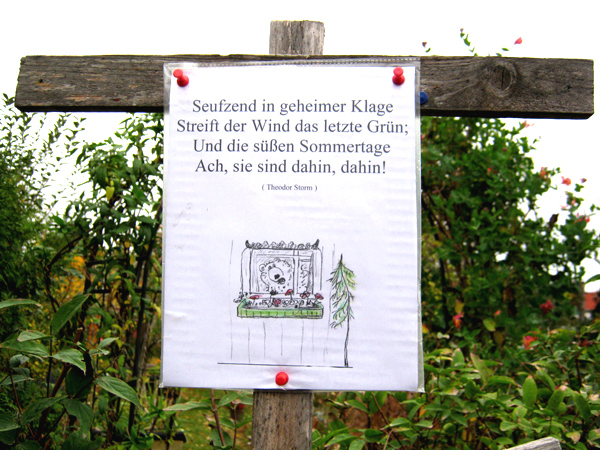 Seufzend in geheimer Klage
Streift der Wind das letzte Grün;
Und die süßen Sommertage
Ach, sie sind dahin, dahin!
( Theodor Storm )